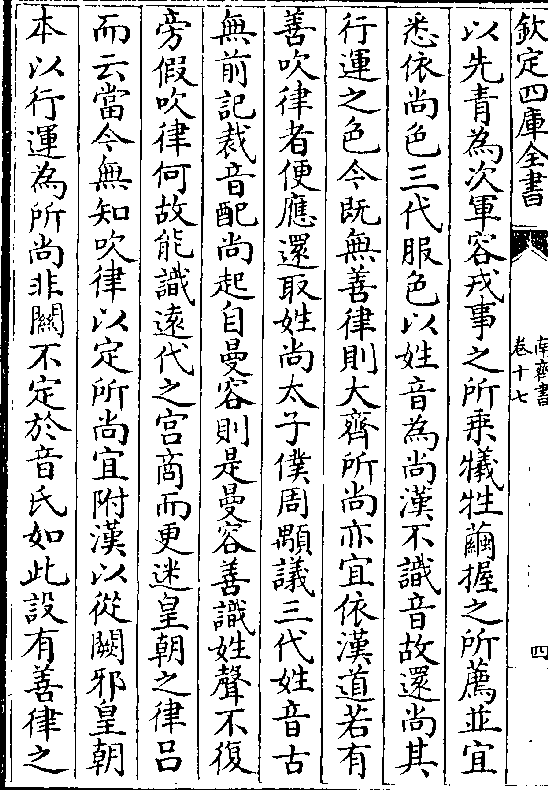 欽定四庫全書
南齊書
卷十七
四
以先青為次軍容戎事之所乗犧牲繭握之所薦並宜
悉依尚色三代服色以姓音為尚漢不識音故還尚其
行運之色今既無善律則大齊所尚亦宜依漢道若有
善吹律者便應還取姓尚太子僕周顒議三代姓音古
無前記裁音配尚起自曼容則是曼容善識姓聲不復
旁假吹律何故能識逺代之宫商而更迷皇朝之律吕
而云當今無知吹律以定所尚宜附漢以從闕邪皇朝
本以行運為所尚非關不定於音氏如此設有善律之